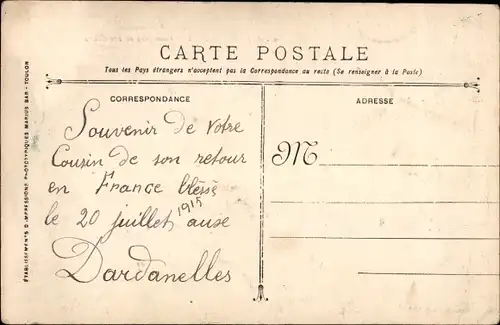 CARTE POSTALE
Tous les Pays étrangers n'acceptent pas la Correspondance au recto (Se renseigner à la Poste)
CORRESPONDANCE
Souvenir de votre
Cousin de son retour
en France blessé
le 20 juillet 1915 auxe
Dardanelles
ADRESSE
M
ÉTABLISSEMENTS D'IMPRESSIONS PHOTOTYPIQUES MARIUS BAR - TOULON